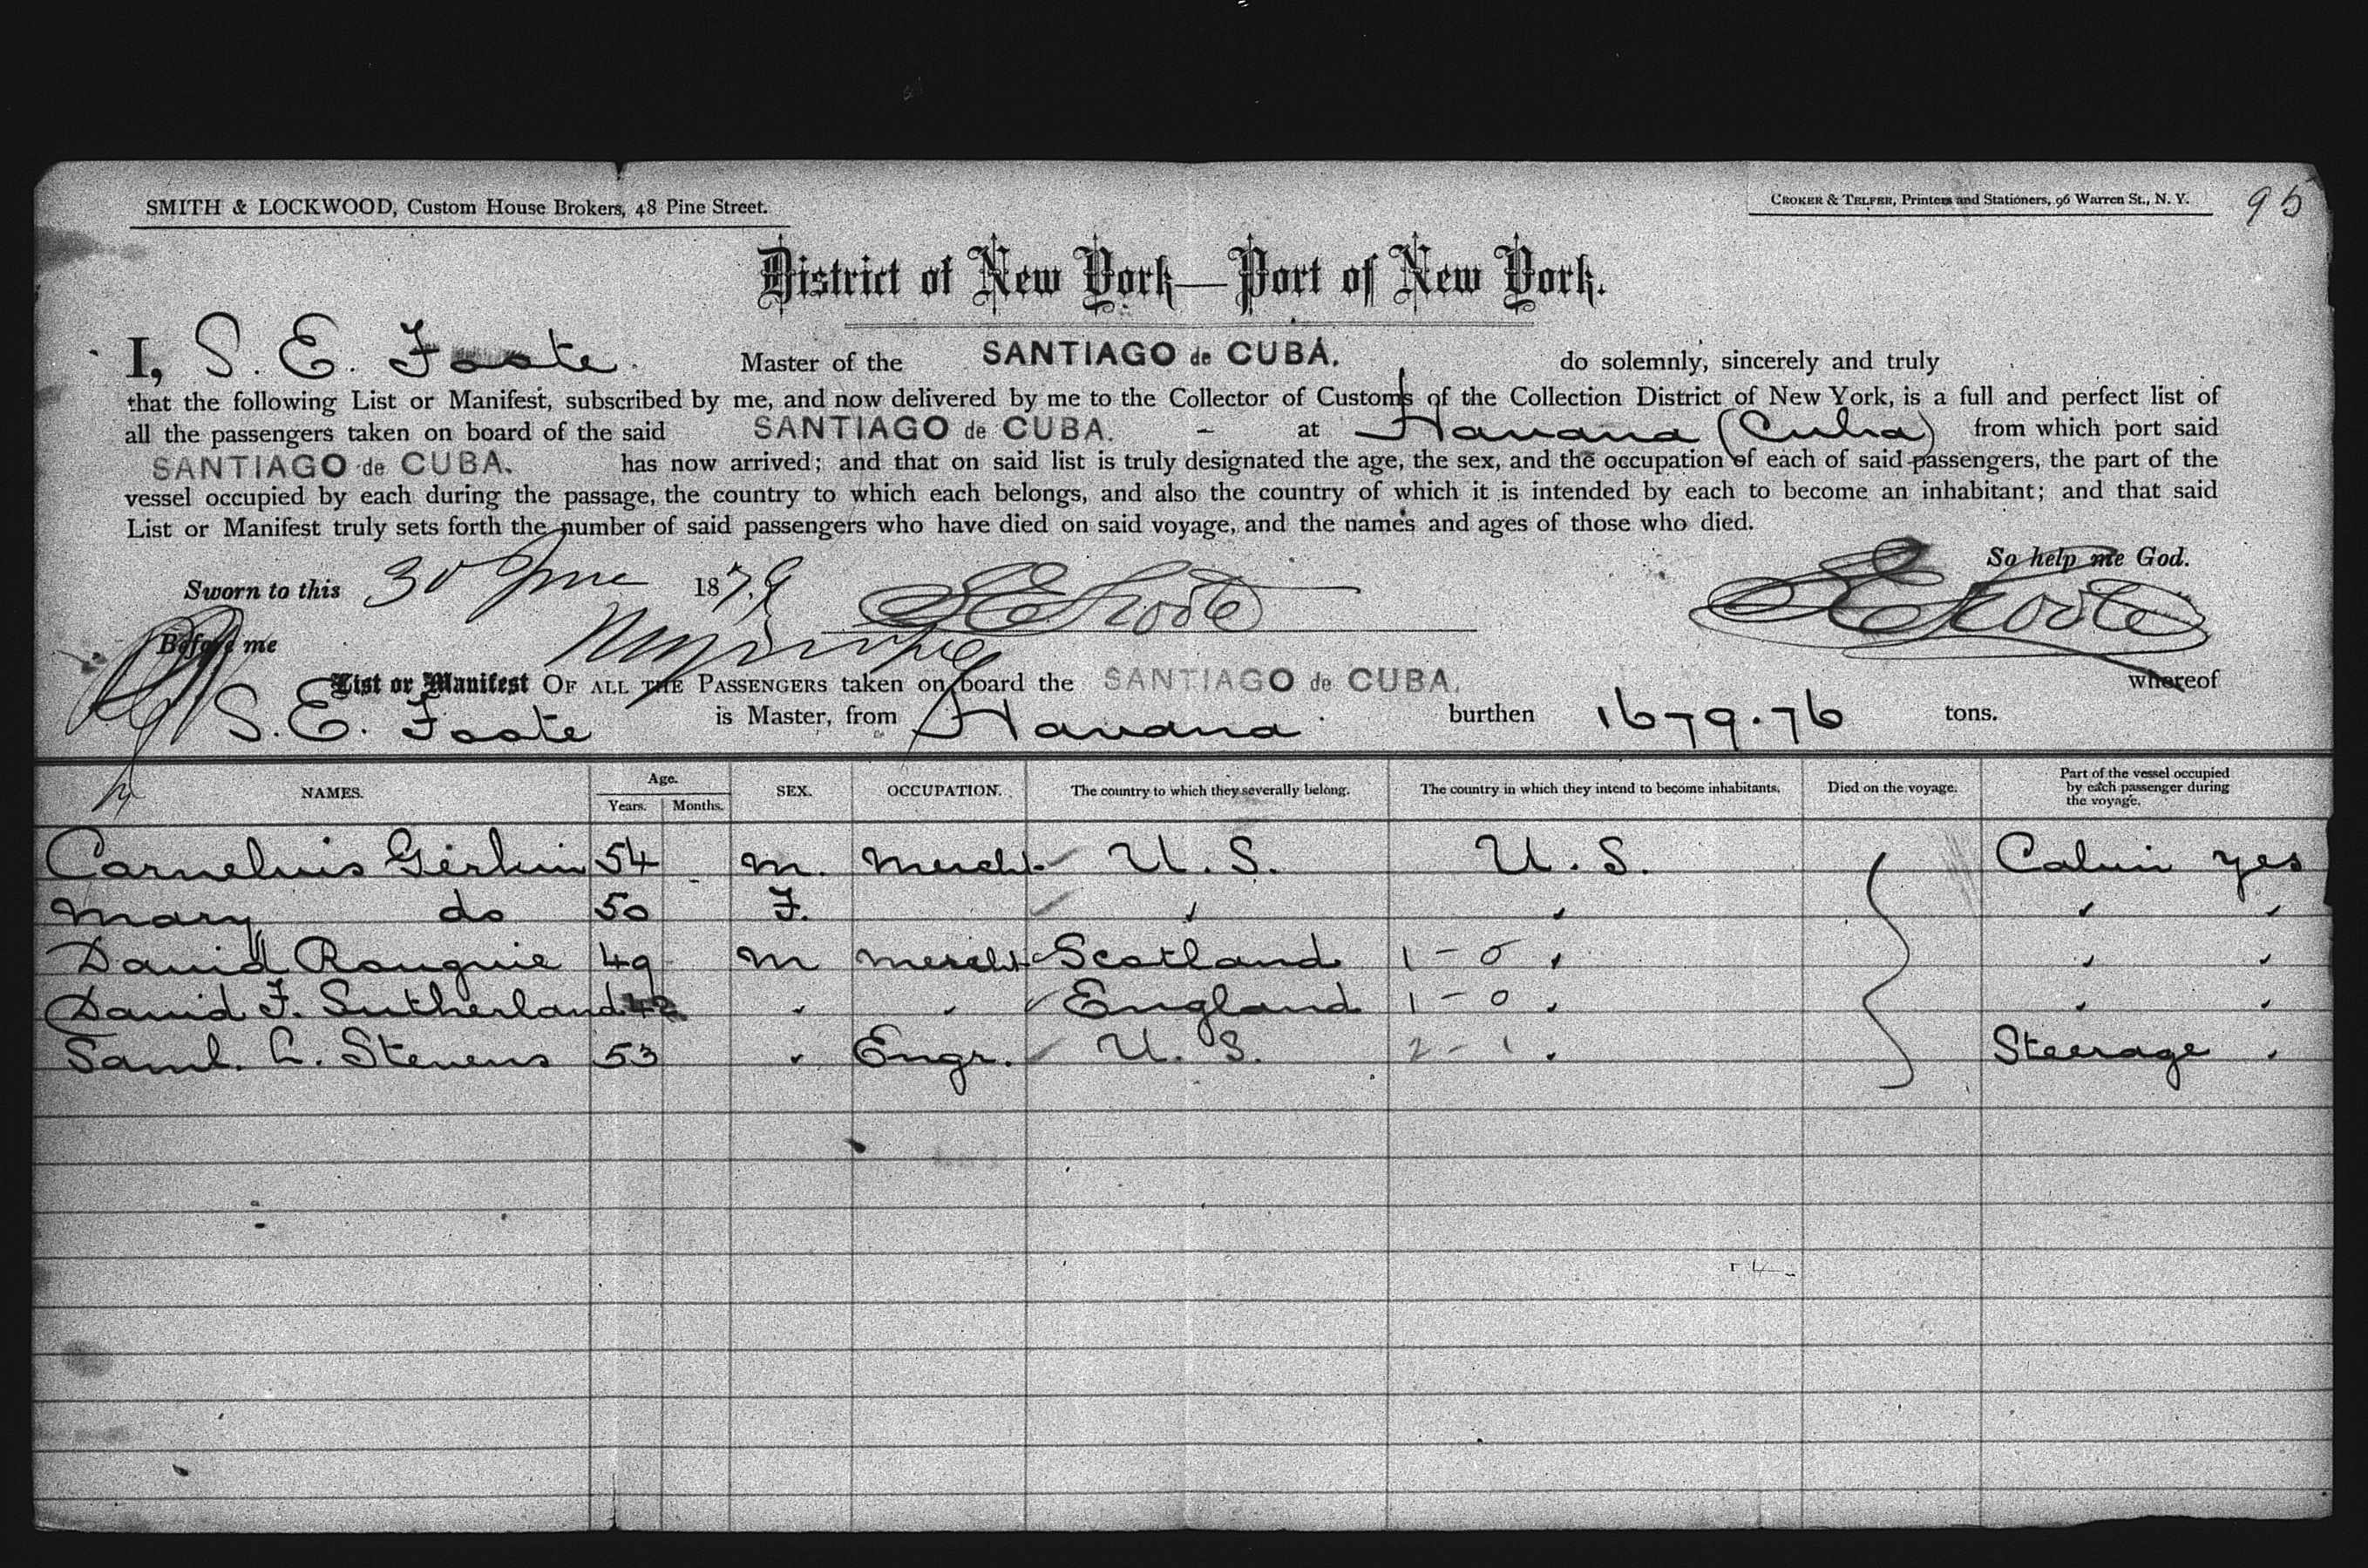 SMITH & LOCKWOOD, Custom House Brokers, 48 Pine Street.
CROKER & TELFER, Printers and Stationers, 96 Warren St., N. Y.
95
District of New York—Port of New York.
I, S. E. Foote Master of the SANTIAGO de CUBA. do solemnly, sincerely and truly
that the following List or Manifest, subscribed by me, and now delivered by me to the Collector of Customs of the Collection District of New York, is a full and perfect list of
all the passengers taken on board of the said SANTIAGO de CUBA. - at Havana (Cuba) from which port said
SANTIAGO de CUBA. has now arrived; and that on said list is truly designated the age, the sex, and the occupation of each of said passengers, the part of the
vessel occupied by each during the passage, the country to which each belongs, and also the country of which it is intended by each to become an inhabitant; and that said
List or Manifest truly sets forth the number of said passengers who have died on said voyage, and the names and ages of those who died.
So help me God.
Sworn to this 30 June 1879 S E Foote S E Foote
Before me
List or Manifest OF ALL THE PASSENGERS taken on board the SANTIAGO de CUBA. whereof
S. E. Foote is Master, from Havana burthen 1679.76 tons.
NAMES. Age. Years. Months. SEX. OCCUPATION. The country to which they severally belong. The country in which they intend to become inhabitants. Died on the voyage. Part of the vessel occupied by each passenger during the voyage.
Cornelius 54 m. Mercht U. S. U. S. Cabin yes
Mary do 50 F. " " " "
David 49 m Mercht Scotland 1 - 0 " " "
David F. Sutherland 42 " " England 1 - 0 " " "
Saml. L. Stevens 53 " Engr. U. S. 2 - 1 " Steerage "